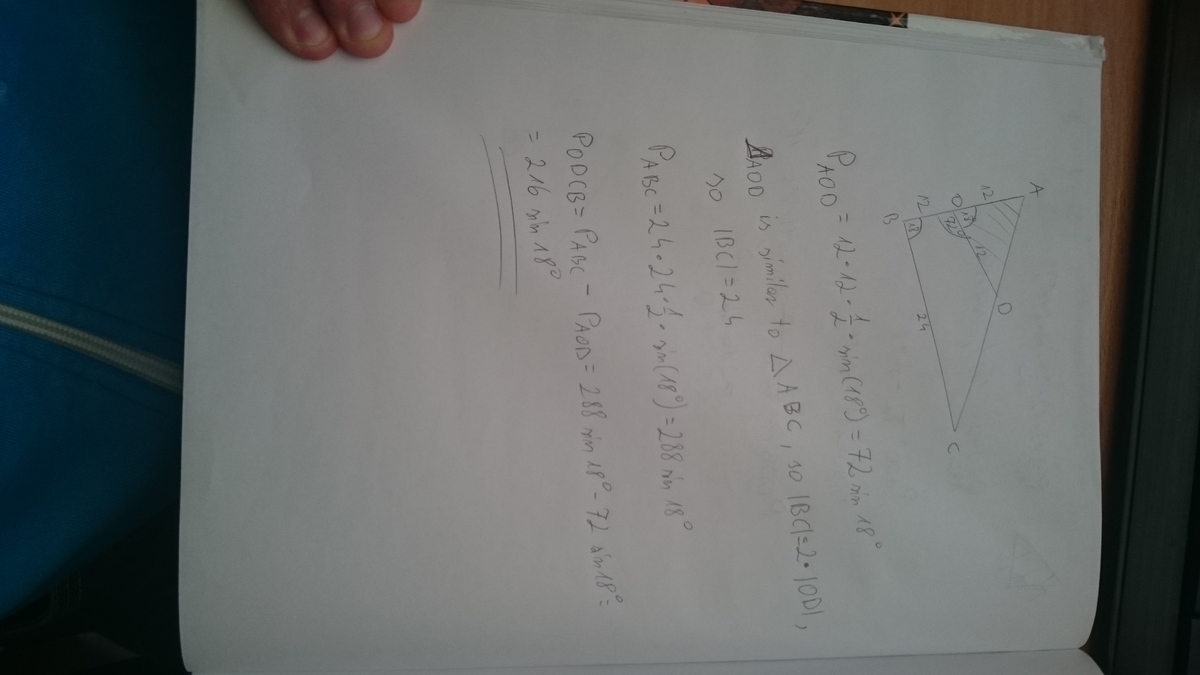 A
12
O
12
B
D
12
18
18
24
C
P_AOD = 12·12·½·sin(18°) = 72 sin 18°
△AOD is similar to △ABC, so |BC| = 2·|OD|,
so |BC| = 24
P_ABC = 24·24·½·sin(18°) = 288 sin 18°
P_ODCB = P_ABC − P_AOD = 288 sin 18° − 72 sin 18° =
= 216 sin 18°